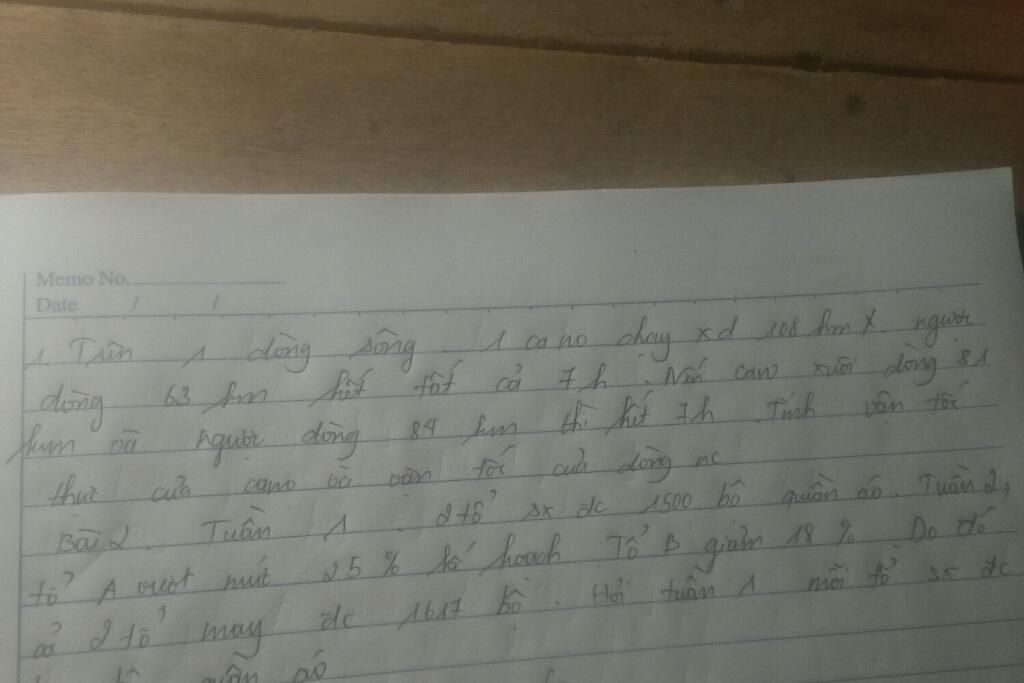 Memo No.
Date / /
1. Trên 1 dòng sông. 1 ca no chạy xd 108 km x ngược
dòng 63 km hết tất cả 7h. Nếu cano xuôi dòng 81
km và ngược dòng 84 km thì hết 7h. Tính vận tốc
thực của cano và vận tốc của dòng nc
Bài 2. Tuần 1. 2 tổ sx đc 1500 bộ quần áo. Tuần 2,
tổ A vượt mức 25% kế hoạch Tổ B giảm 18% Do đó
cả 2 tổ may đc 1617 bộ. Hỏi tuần 1 mỗi tổ sx đc
quần áo